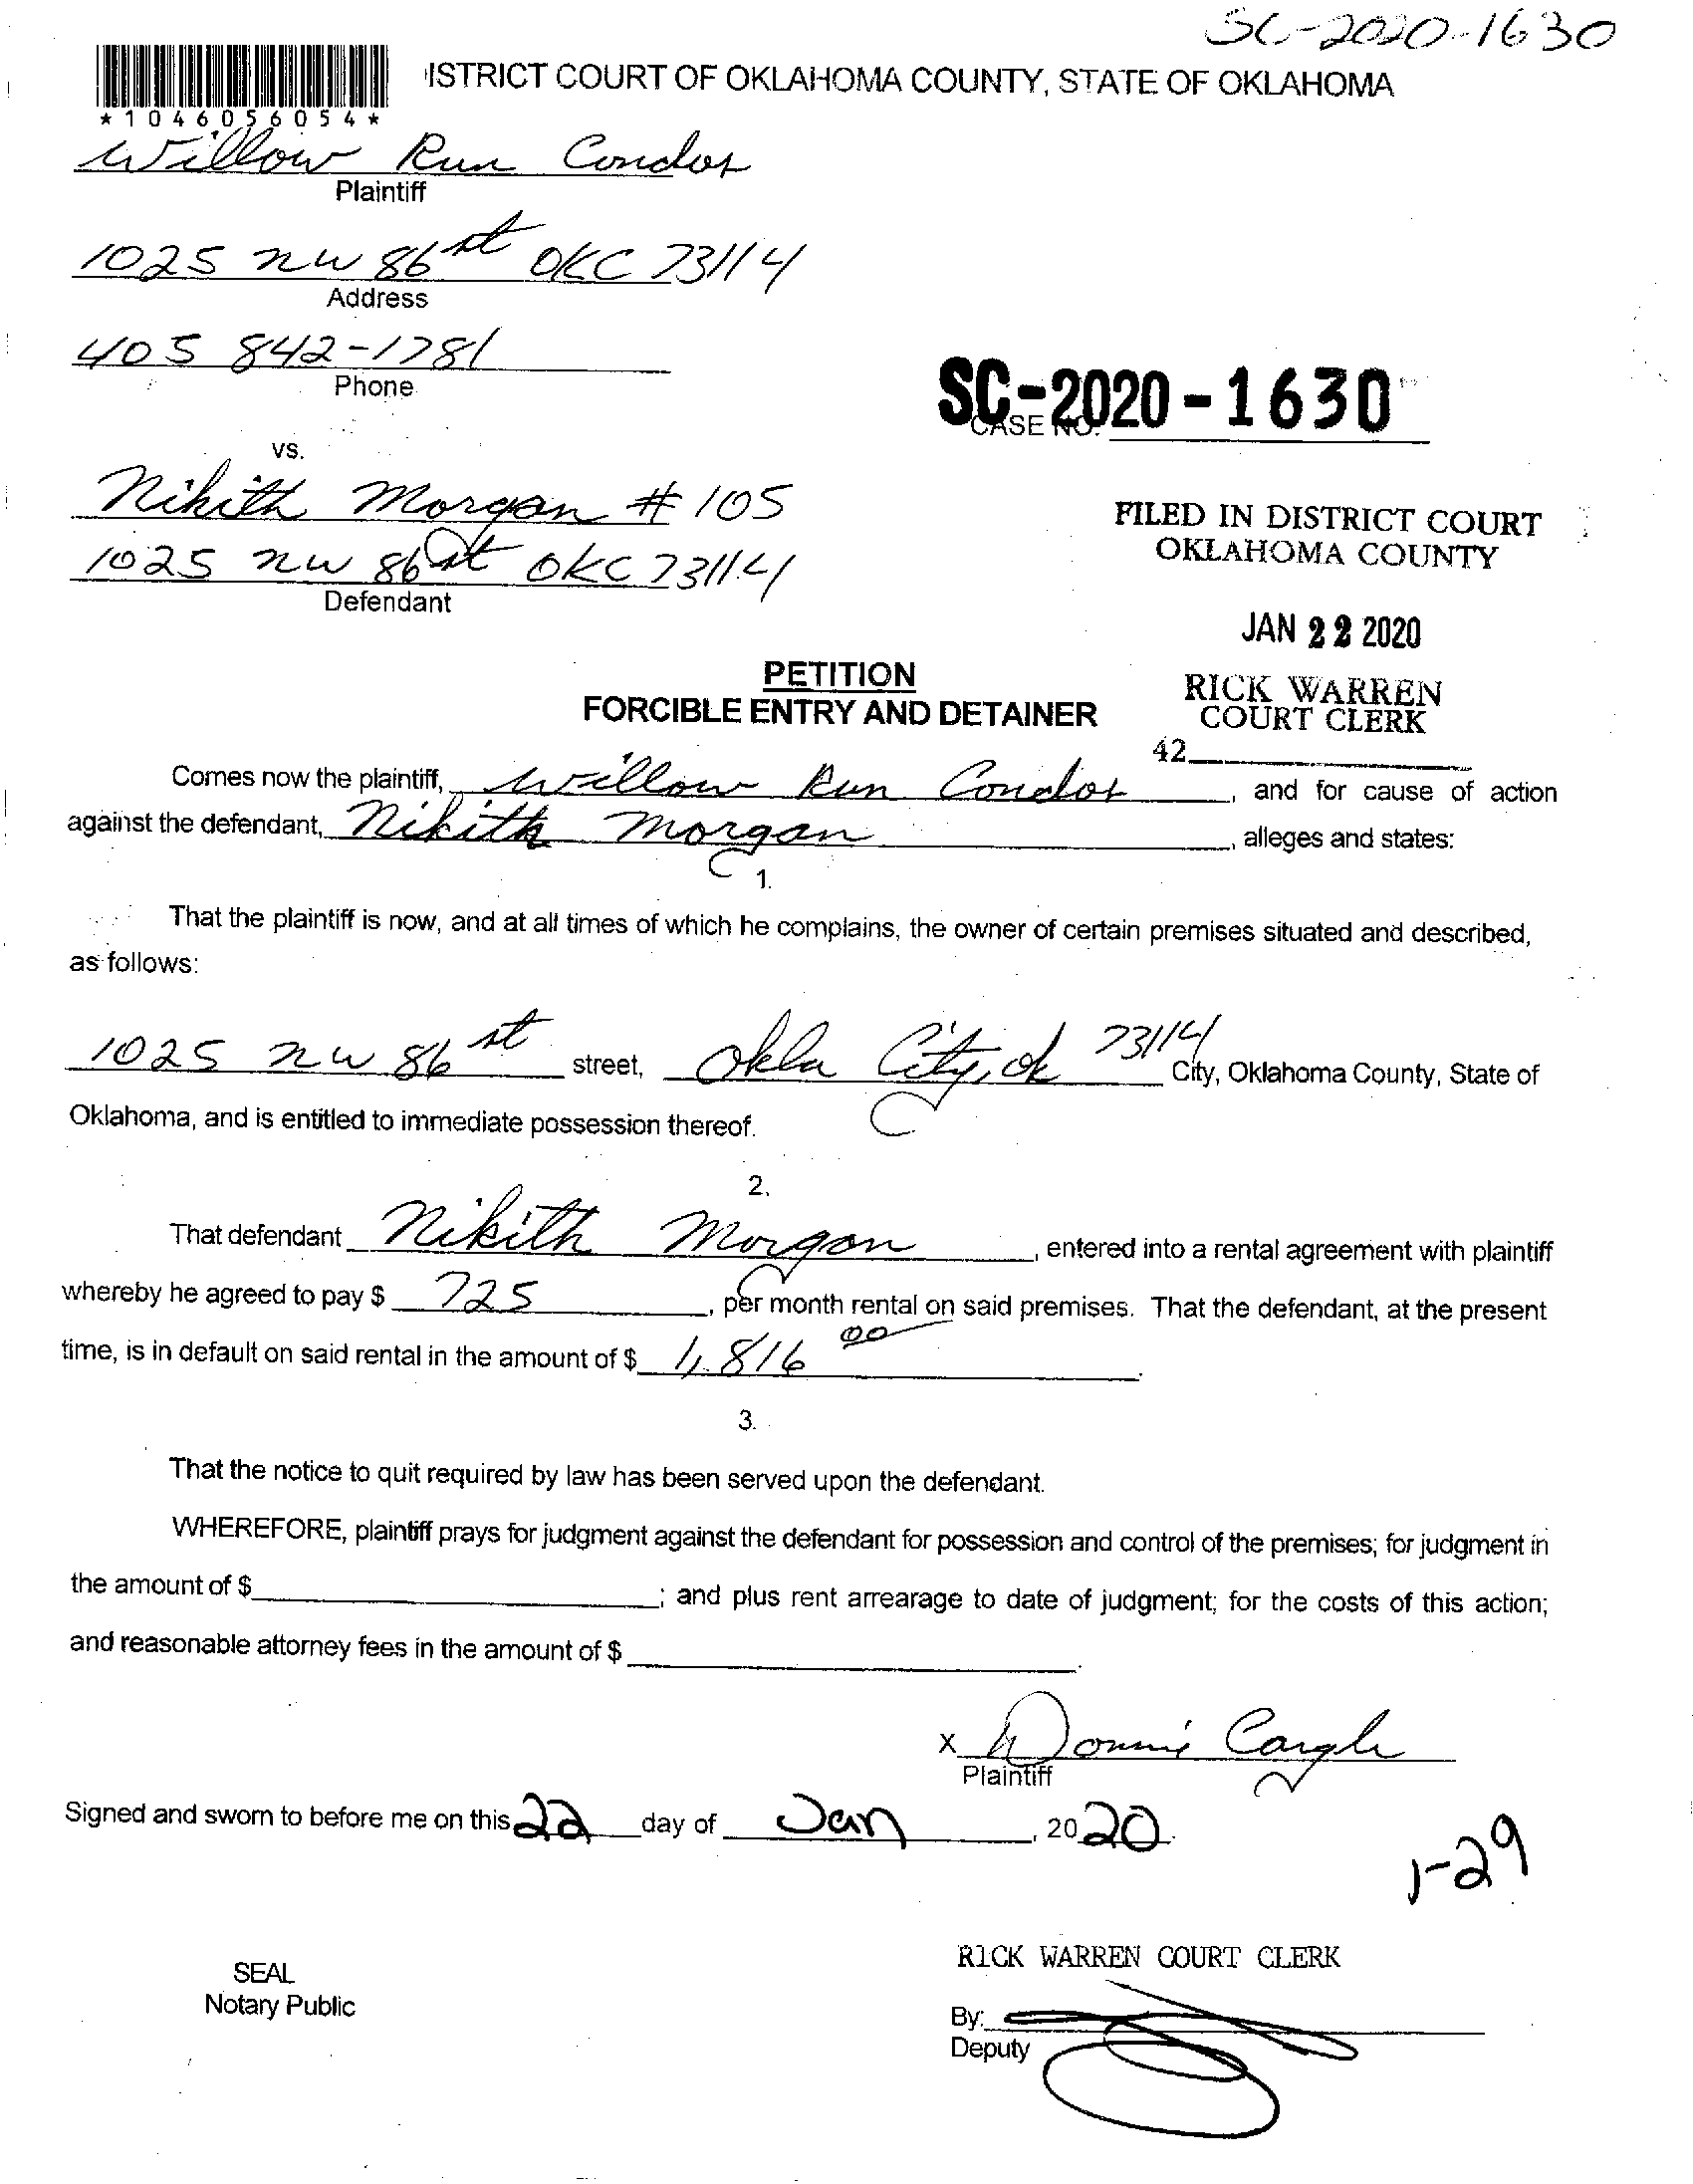 SC-2020-1630
ISTRICT COURT OF OKLAHOMA COUNTY, STATE OF OKLAHOMA
*1046056054*
Willow Run Condos
Plaintiff
1025 NW 86 st OKC 73114
Address
405 842-1781
Phone
SC-2020-1630
CASE NO.
vs.
Nikith Morgan # 105
1025 NW 86 st OKC 73114
Defendant
FILED IN DISTRICT COURT
OKLAHOMA COUNTY
JAN 22 2020
RICK WARREN
COURT CLERK
42
PETITION
FORCIBLE ENTRY AND DETAINER
Comes now the plaintiff, Willow Run Condos, and for cause of action
against the defendant, Nikith Morgan, alleges and states:
1.
That the plaintiff is now, and at all times of which he complains, the owner of certain premises situated and described,
as follows:
1025 NW 86 st street, Okla City, Ok 73114 City, Oklahoma County, State of
Oklahoma, and is entitled to immediate possession thereof.
2.
That defendant Nikith Morgan, entered into a rental agreement with plaintiff
whereby he agreed to pay $ 725, per month rental on said premises. That the defendant, at the present
time, is in default on said rental in the amount of $ 1,816 00.
3.
That the notice to quit required by law has been served upon the defendant.
WHEREFORE, plaintiff prays for judgment against the defendant for possession and control of the premises; for judgment in
the amount of $ ; and plus rent arrearage to date of judgment; for the costs of this action;
and reasonable attorney fees in the amount of $ .
X Donnie Cargle
Plaintiff
Signed and sworn to before me on this 22 day of Jan, 2020.
1-29
SEAL
Notary Public
RICK WARREN COURT CLERK
By:
Deputy